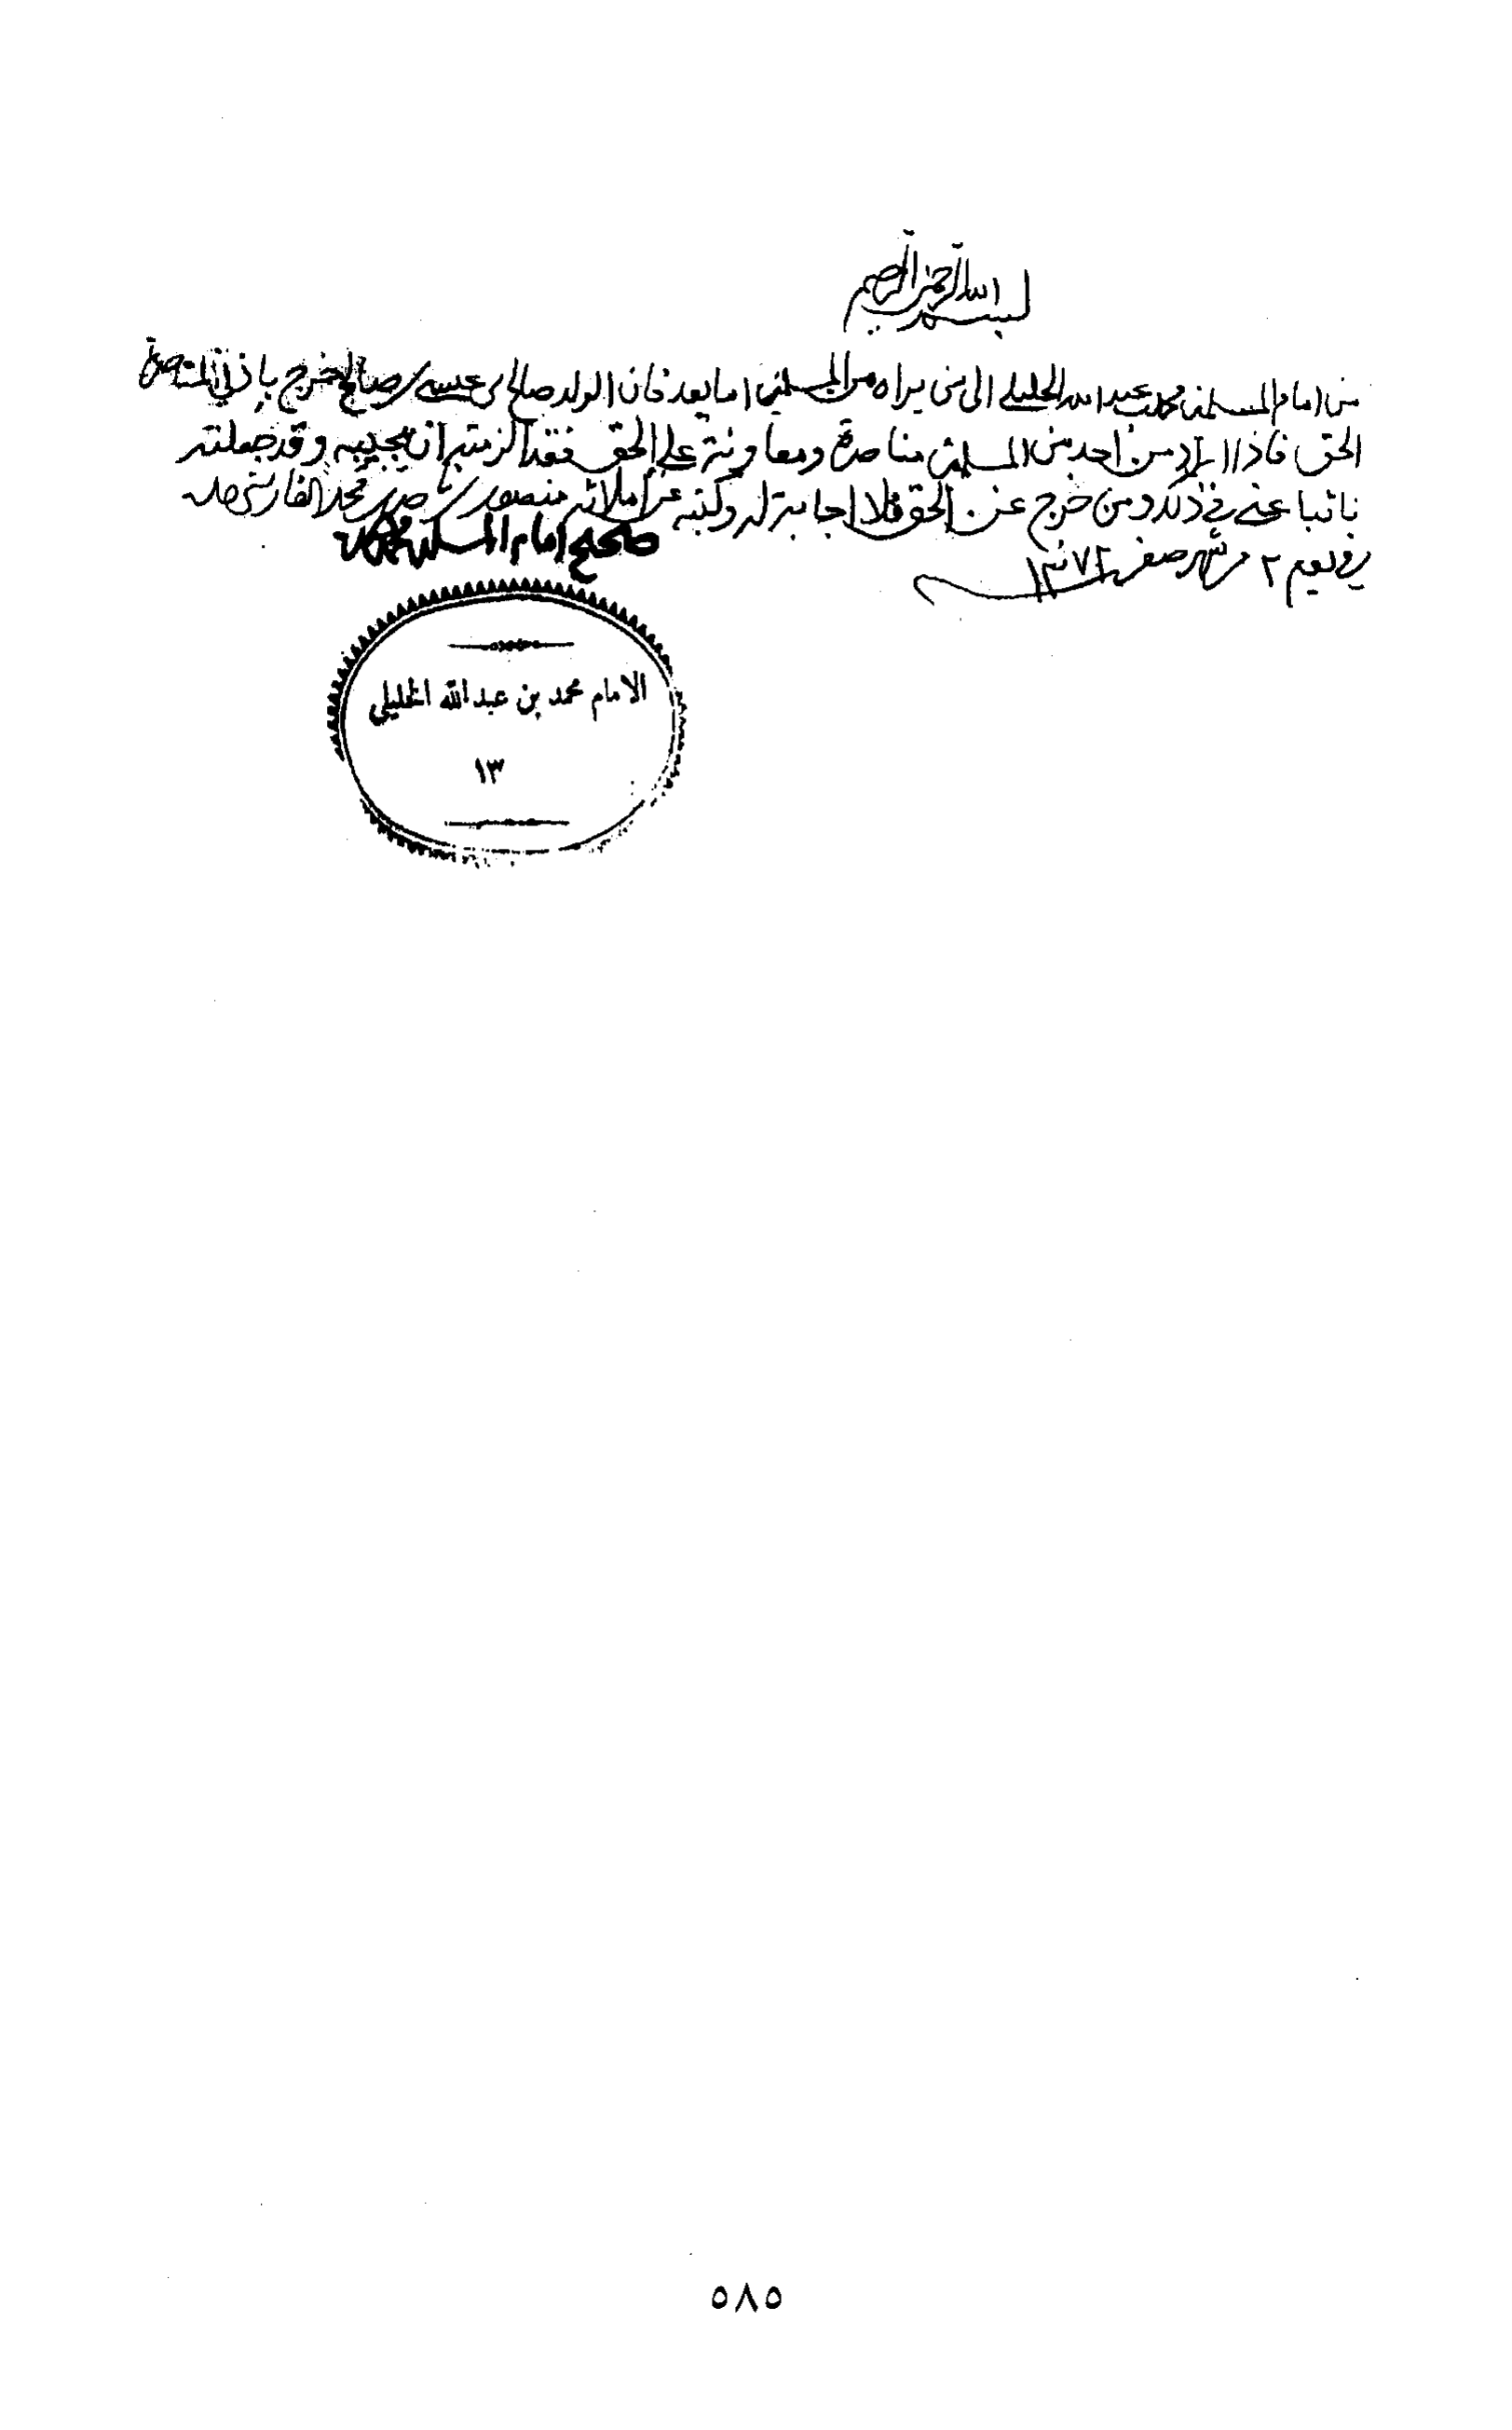 بسم الله الرحمن الرحيم
من إمام المسلمين محمد بن عبد الله الخليلي الى من يراه من المسلمين اما بعد فان الولد صالح بن عيسى بن صالح خرج بإذني لمناصرة
الحق فاذا اراد من احد من المسلمين مناصرة ومعاونة على الحق فقد الزمته ان يجيبه وقد جعلته
نائبا عني في ذلك ومن خرج عن الحق فلا اجابة له وكتبه عن املائه منصور بن ناصر بن محمد الفارسي
يوم ٢ من شهر صفر سنة ١٣٧٢
صحيح امام المسلمين
الامام محمد بن عبد الله الخليلي
١٣
٥٨٥